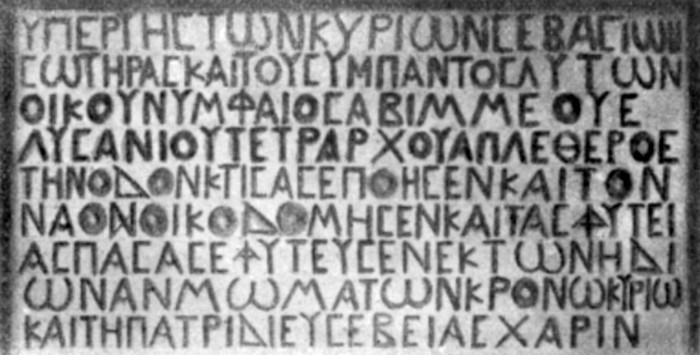 ΥΠΕΡΓΗϹΤΩΝΚΥΡΙΩΝϹΕΒΑϹΙΩΝ
ϹΩΤΗΡΑϹΚΑΙΤΟΥϹΥΜΠΑΝΤΟϹΛΥΤΩΝ
ΟΙΚΟΥΝΥΜΦΑΙΟϹΑΒΙΜΜΕΟΥΕ
ΛΥϹΑΝΙΟΥΤΕΤΡΑΡΧΟΥΑΠΛΕΘΕΡΟΕ
ΤΗΝΟΔΟΝΚΤΙϹΑϹΕΠΟΗϹΕΝΚΑΙΤΟΝ
ΝΑΟΝΟΙΚΟΔΟΜΗϹΕΝΚΑΙΤΑϹΦΥΤΕΙ
ΑϹΠΑϹΑϹΕΦΥΤΕΥϹΕΝΕΚΤΩΝΗΔΙ
ΩΝΑΝΜΩΜΑΤΩΝΚΡΟΝΩΚΥΡΙΩ
ΚΑΙΤΗΠΑΤΡΙΔΙΕΥϹΕΒΕΙΑϹΧΑΡΙΝ